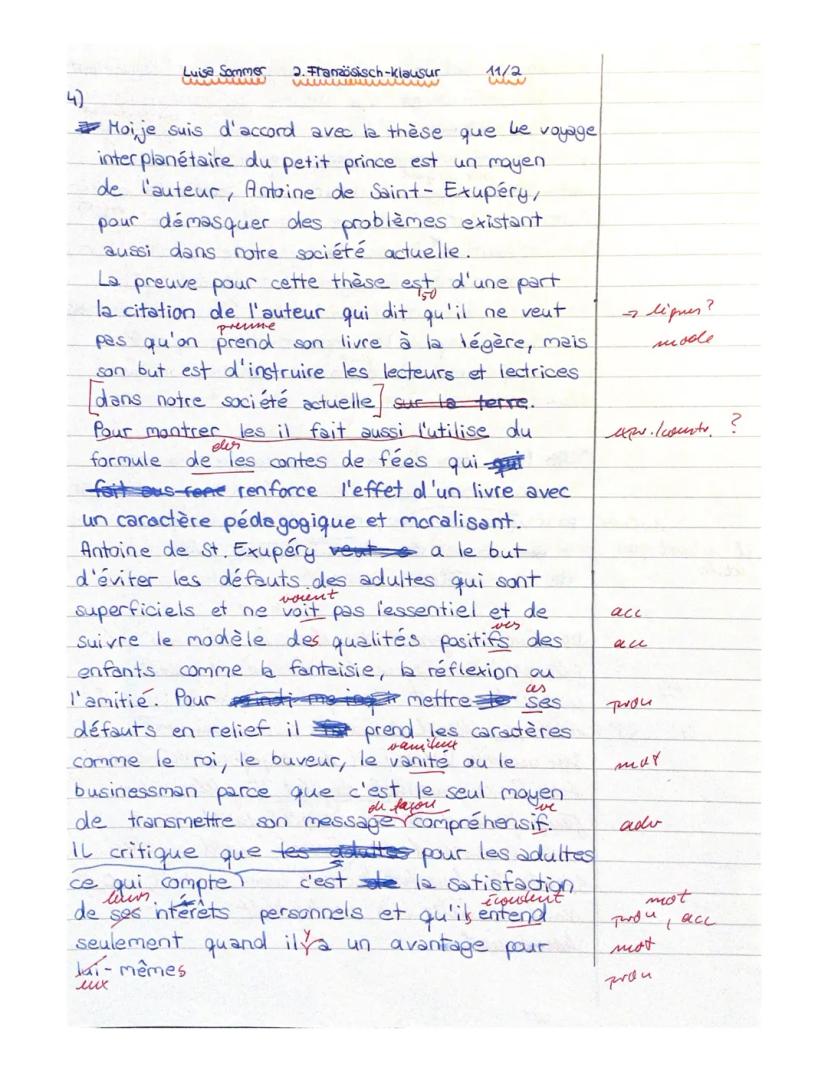 Luisa Sommer 2. Französisch-Klausur 11/2
4)
Moi, je suis d'accord avec la thèse que le voyage
interplanétaire du petit prince est un moyen
de l'auteur, Antoine de Saint-Exupéry,
pour démasquer des problèmes existant
aussi dans notre société actuelle.
La preuve pour cette thèse est, d'une part
la citation de l'auteur qui dit qu'il ne veut → lignes?
prenne
pas qu'on prend son livre à la légère, mais mode
son but est d'instruire les lecteurs et lectrices
[dans notre société actuelle] sur la terre.
Pour montrer les il fait aussi l'utilise du expr./constr. ?
des
formule de les contes de fées qui qui
fait renforce l'effet d'un livre avec
un caractère pédagogique et moralisant.
Antoine de St. Exupéry veut a le but
d'éviter les défauts des adultes qui sont
voient
superficiels et ne voit pas l'essentiel et de acc
ves
suivre le modèle des qualités positifs des acc
enfants comme la fantaisie, la réflexion ou
ces
l'amitié. Pour mettre ses pron
défauts en relief il prend les caractères
vaniteux
comme le roi, le buveur, le vanité ou le mot
businessman parce que c'est le seul moyen
de façon ve
de transmettre son message compréhensif. adv
Il critique que les adultes pour les adultes
ce qui compte c'est de la satisfaction
leurs écoutent mot
de ses intérêts personnels et qu'ils entend pron, acc
y
seulement quand il a un avantage pour mot
lui-mêmes
eux pron